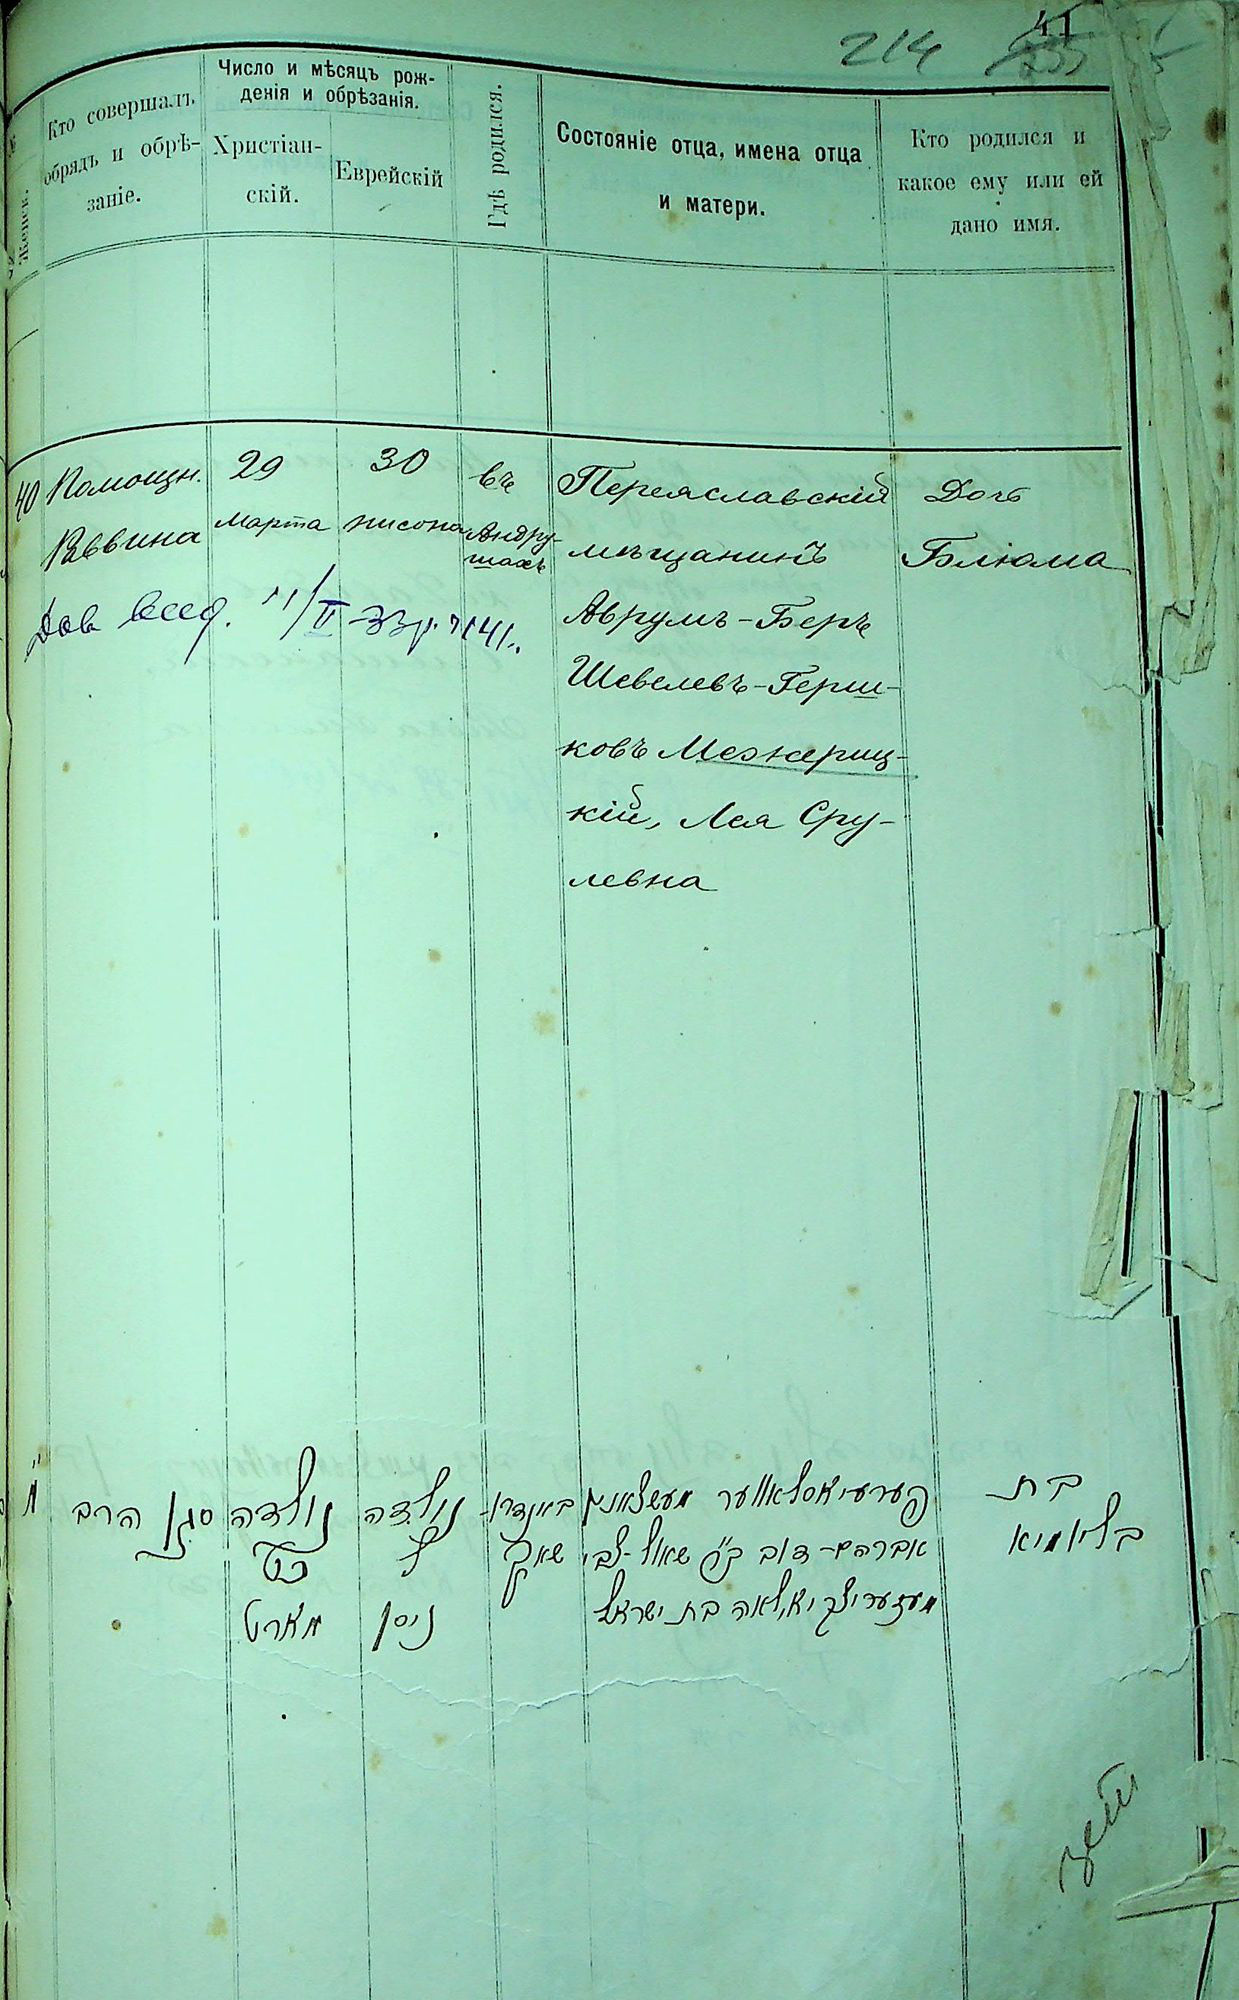 214
41
Женск.
Кто совершалъ
обрядъ и обрѣ-
заніе.
Число и мѣсяцъ рож-
денія и обрѣзанія.
Христіан-
скій.
Еврейскій
Гдѣ родился.
Состояніе отца, имена отца
и матери.
Кто родился и
какое ему или ей
дано имя.
40
Помощн.
Раввина
29
Марта
30
нисона
въ
Андру-
шахъ
Переяславскій
мѣщанинъ
Аврумъ-Беръ
Шевелевъ-Герш-
ковъ Межериц-
кій, Лея Сру-
левна
Дочь
Блюма
11/II 33г.
מ
סגן הרב
נולדה
כט
מארט
נולדה
ל
ניסן
באנדרו-
פערעיאסלאווער מעשצאנין
אברהם-דוב שאול-צבי
לאה בת ישראל
בת
בליומא